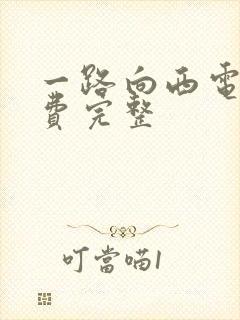 一路向西電
費完整
叮當喵1